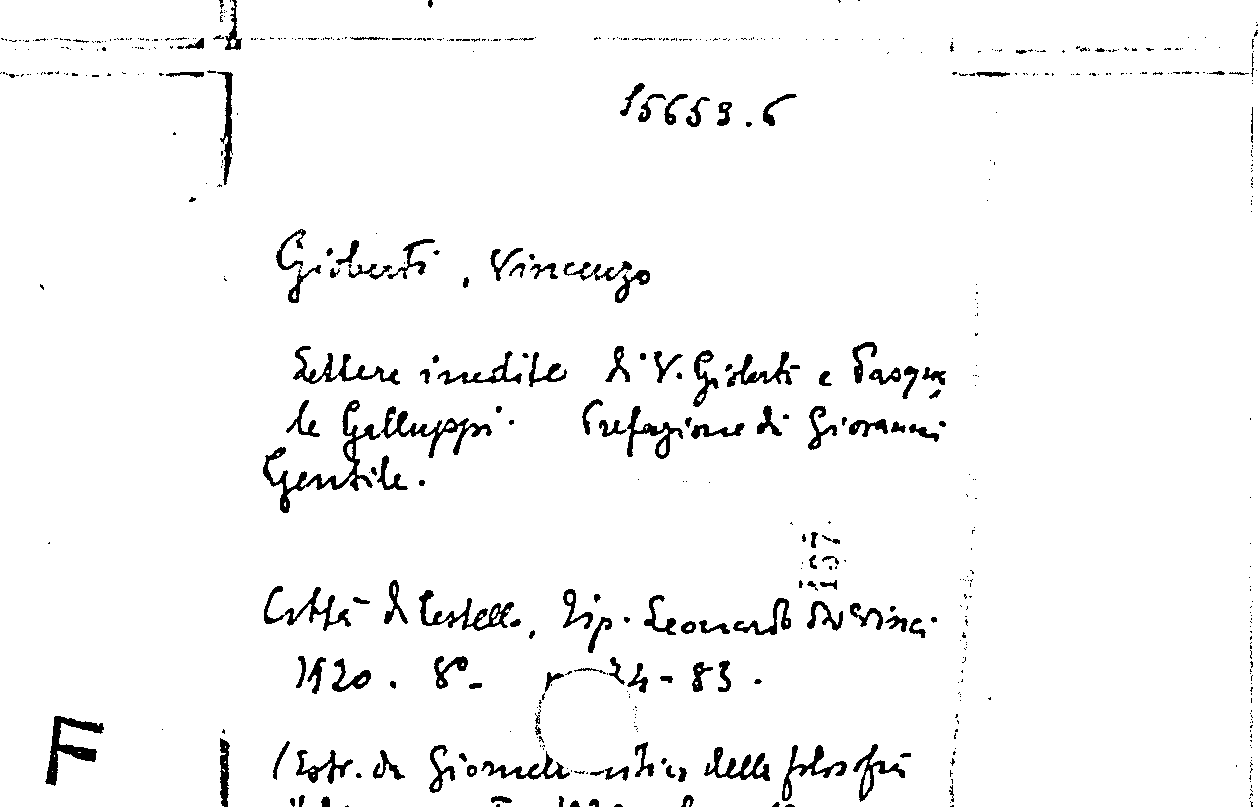 15659.6
Gioberti, Vincenzo
Lettere inedite di V. Gioberti e Pasqua
le Galluppi. Prefazione di Giovanni
Gentile.
157
Città di Castello, Tip. Leonardo Da Vinci
1920. 8° 74-83.
(Estr. da Giornale della filosofia
F